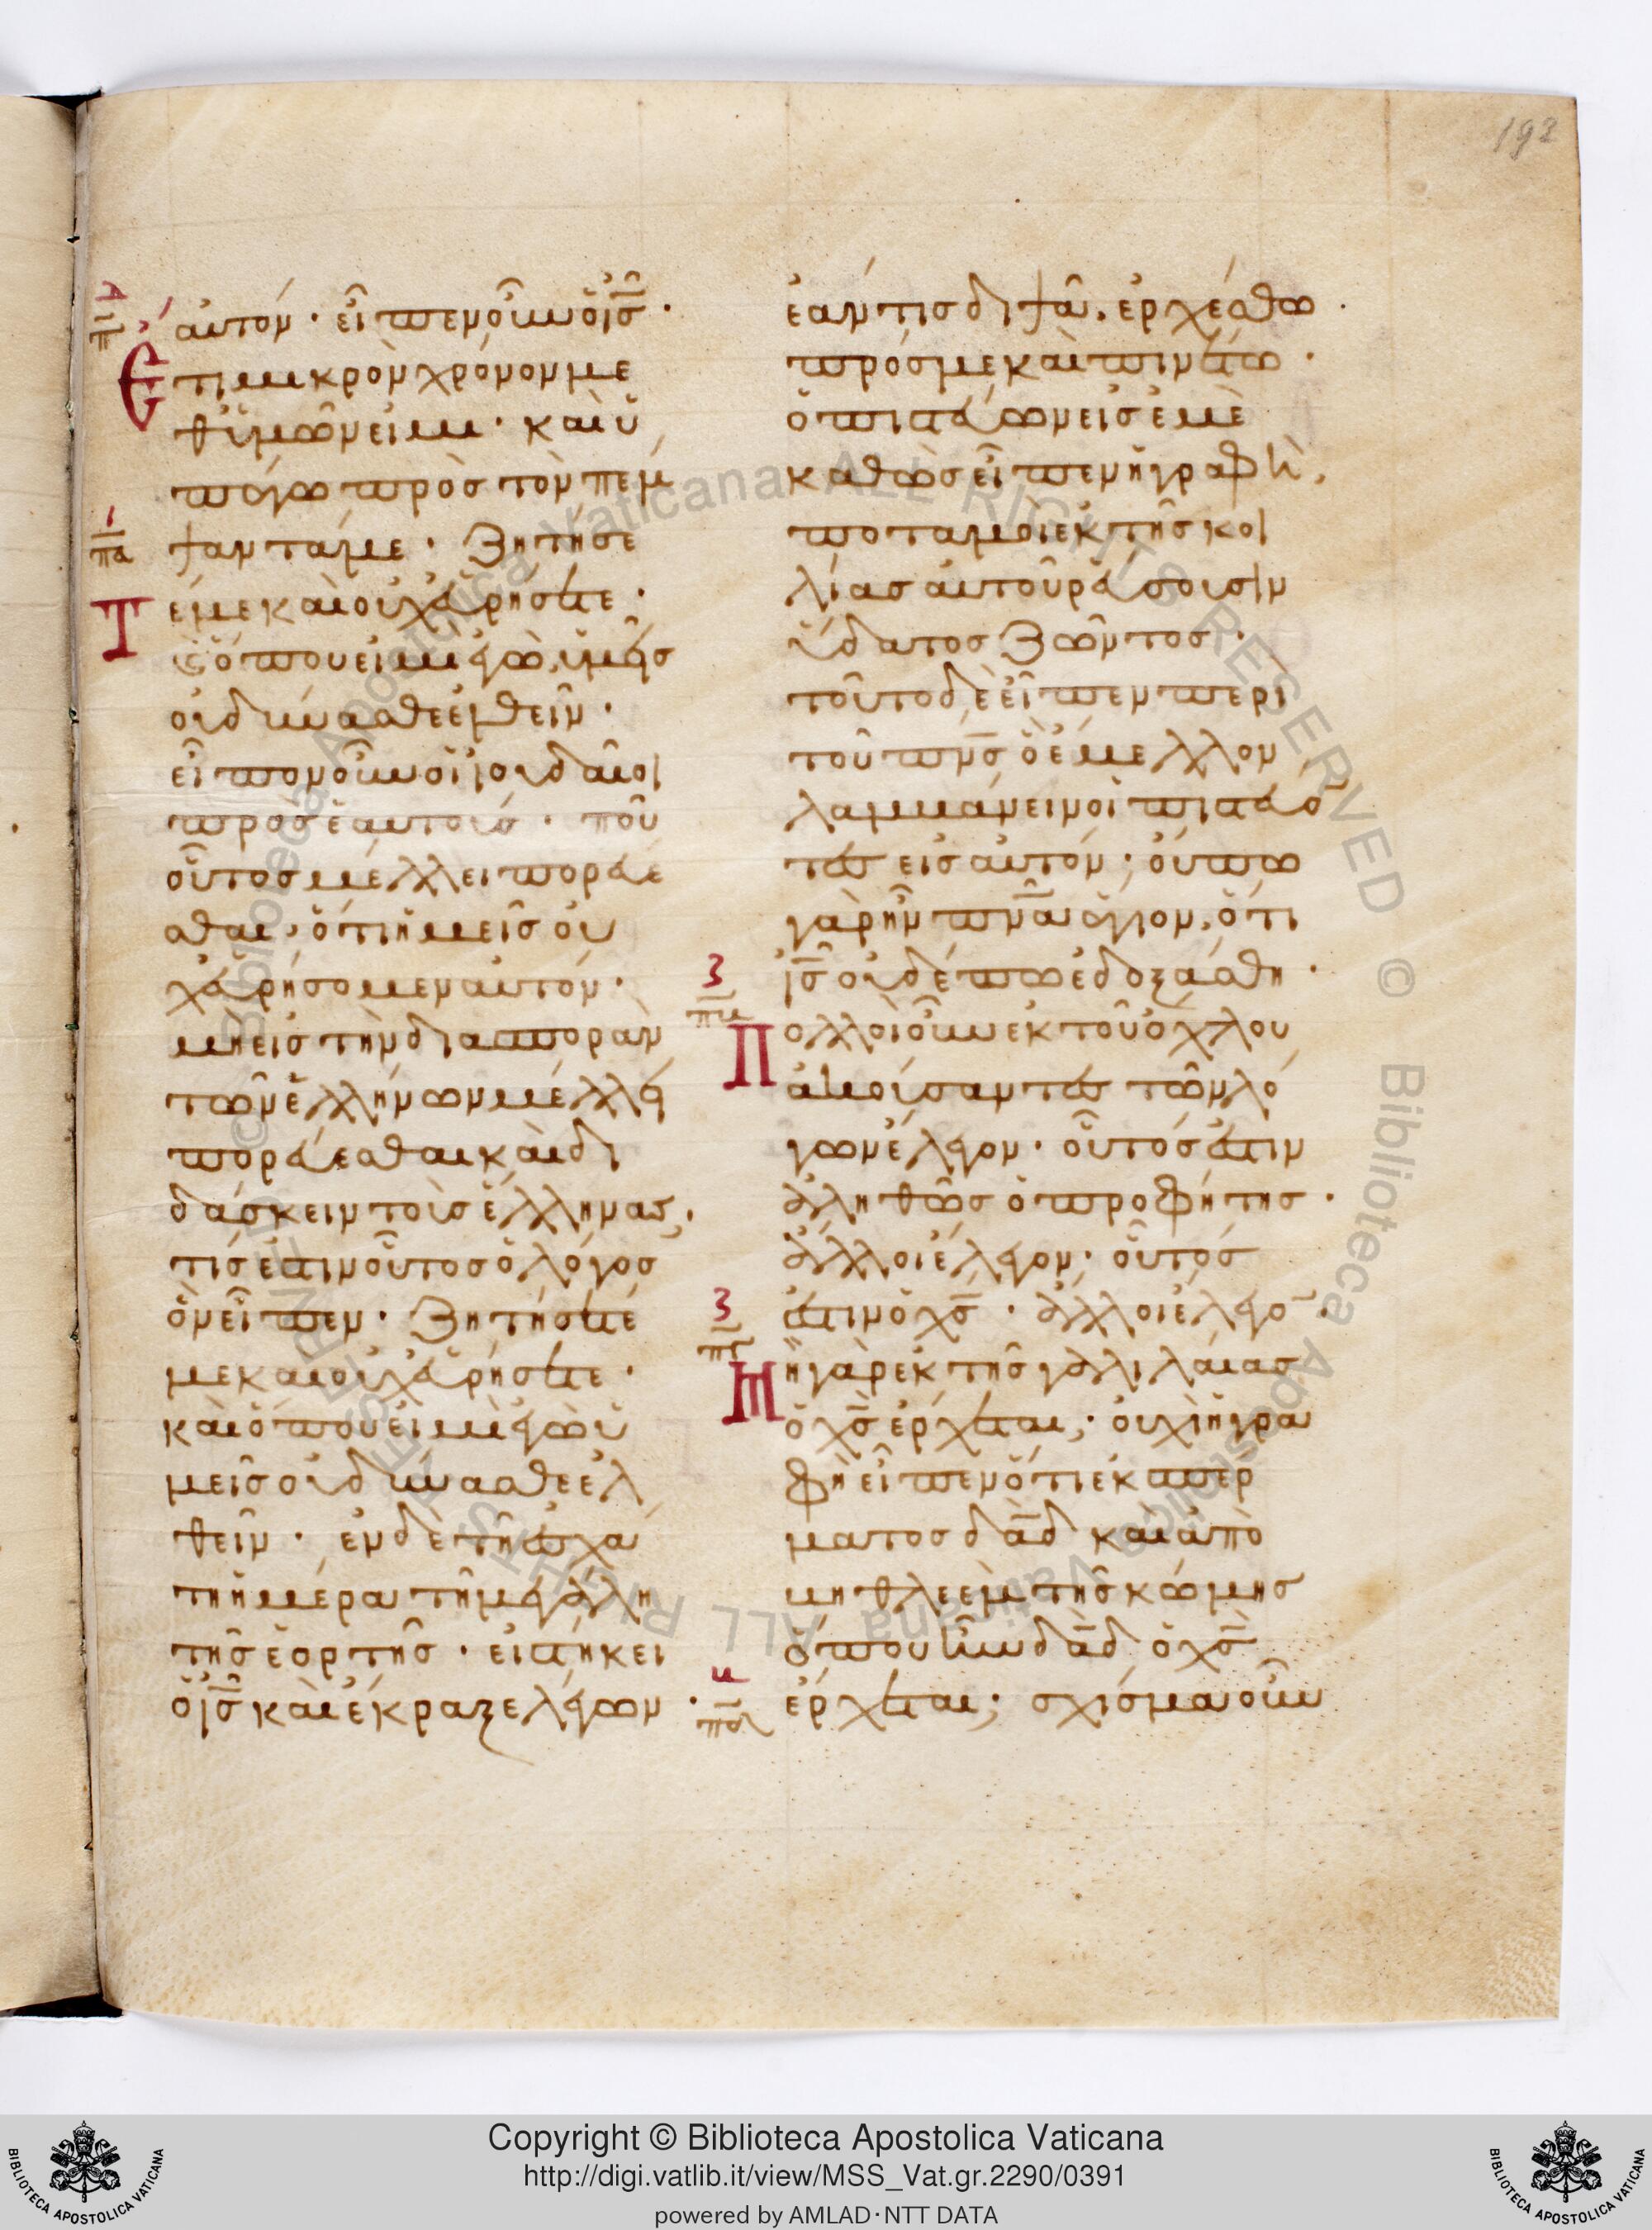 193
αὐτόν· εἶπεν οὖν ὁ ἰς·
Ἔτι μικρὸν χρόνον με
θ' ὑμῶν εἰμι· καὶ ὑ
πάγω πρὸς τὸν πέμ
ψαντά με· Ζητήσε
Τ
ε με καὶ οὐχ εὑρήσετε·
ὅπου εἰμὶ ἐγὼ, ὑμεῖς
οὐ δύνασθε ἐλθεῖν·
εἶπον οὖν οἱ ἰουδαῖοι
πρὸς ἑαυτούς· ποῦ
οὗτος μέλλει πορεύε
σθαι, ὅτι ἡμεῖς οὐ
χ εὑρήσομεν αὐτόν·
μὴ εἰς τὴν διασπορὰν
τῶν ἑλλήνων μέλλει
πορεύεσθαι καὶ δι
δάσκειν τοὺς ἕλληνας;
τίς ἐστιν οὗτος ὁ λόγος
ὃν εἶπεν· Ζητήσετέ
με καὶ οὐχ εὑρήσετε·
καὶ ὅπου εἰμὶ ἐγὼ ὑ
μεῖς οὐ δύνασθε ἐλ
θεῖν· ἐν δὲ τῆ ἐσχά
τη ἡμέρα τῆ μεγάλη
τῆς ἑορτῆς· εἱστήκει
ὁ ἰς καὶ ἔκραξε λέγων·
ἐάν τις διψᾶ, ἐρχέσθω
πρός με καὶ πινέτω·
ὁ πιστεύων εἰς ἐμὲ
καθὼς εἶπεν ἡ γραφὴ,
ποταμοὶ ἐκ τῆς κοι
λίας αὐτοῦ ῥεύσουσιν
ὕδατος ζῶντος·
τοῦτο δὲ εἶπεν περὶ
τοῦ πνς οὗ ἔμελλον
λαμβάνειν οἱ πιστεύο
τες εἰς αὐτόν; οὔπω
γὰρ ἦν πνα ἅγιον, ὅτι
ἰς οὐδέπω ἐδοξάσθη·
ζ
πβ
Πολλοὶ οὖν ἐκ τοῦ ὄχλου
ἀκούσαντες τῶν λό
γων ἔλεγον· οὗτός ἐστιν
ἀληθῶς ὁ προφήτης·
ἄλλοι ἔλεγον· οὗτός
ἐστιν ὁ χς· ἄλλοι ἔλεγο·
ζ
πγ
Μὴ γὰρ ἐκ τῆς γαλιλαίας
ὁ χς ἔρχεται; οὐχὶ ἡ γρα
φὴ εἶπεν ὅτι ἐκ σπέρ
ματος δαδ καὶ ἀπὸ
βηθλεὲμ τῆς κώμης
ὅπου ἦν δαδ ὁ χς
ἔρχεται; σχίσμα οὖν
Copyright © Biblioteca Apostolica Vaticana
http://digi.vatlib.it/view/MSS_Vat.gr.2290/0391
powered by AMLAD·NTT DATA
BIBLIOTECA APOSTOLICA VATICANA
BIBLIOTECA APOSTOLICA VATICANA